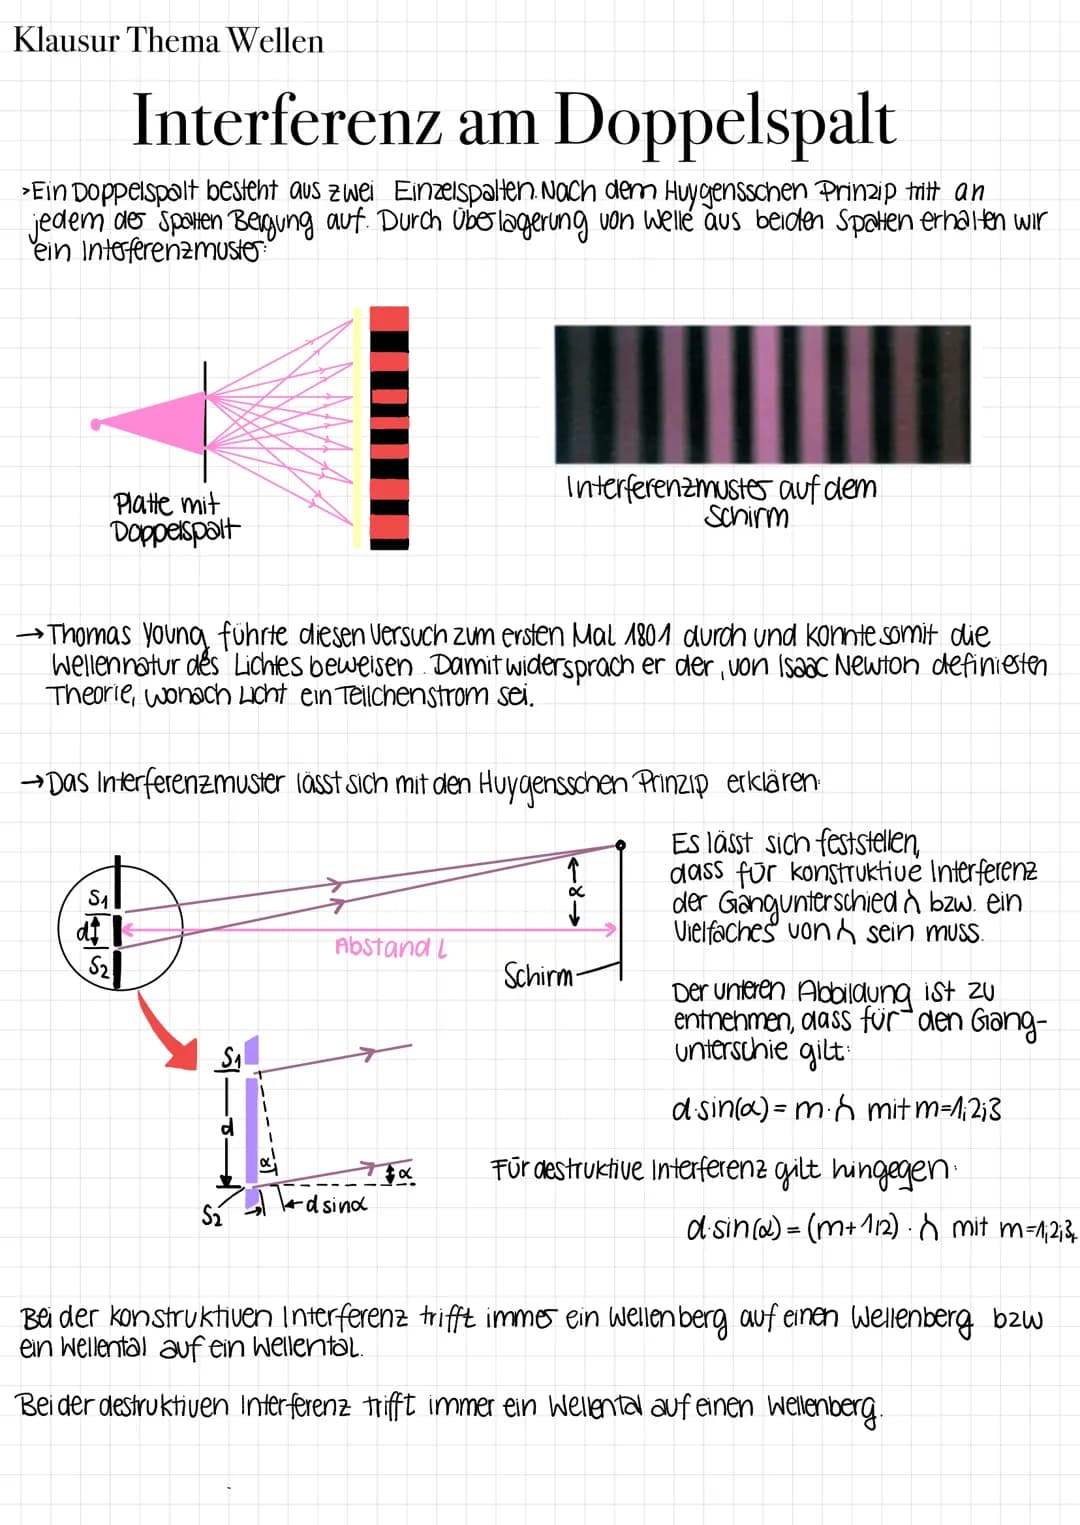 Klausur Thema Wellen
Interferenz am Doppelspalt
>Ein Doppelspalt besteht aus zwei Einzelspalten. Nach dem Huygensschen Prinzip tritt an
jedem der Spalten Beugung auf. Durch Überlagerung von Welle aus beiden Spalten erhalten wir
ein Interferenzmuster:
Platte mit
Doppelspalt
Interferenzmuster auf dem
Schirm
→Thomas Young führte diesen Versuch zum ersten Mal 1801 durch und konnte somit die
Wellennatur des Lichtes beweisen. Damit widersprach er der, von Isaac Newton definierten
Theorie, wonach Licht ein Teilchenstrom sei.
→Das Interferenzmuster lässt sich mit den Huygensschen Prinzip erklären:
S1
d
S2
Abstand L
α
Schirm
Es lässt sich feststellen,
dass für konstruktive Interferenz
der Gangunterschied λ bzw. ein
Vielfaches von λ sein muss.
Der unteren Abbildung ist zu
entnehmen, dass für den Gang-
unterschie gilt:
d·sin(α) = m·λ mit m=1;2;3
S1
d
α
S2
α
d sinα
Für destruktive Interferenz gilt hingegen:
d·sin(α) = (m+1/2)·λ mit m=1;2;3;
Bei der konstruktiven Interferenz trifft immer ein Wellenberg auf einen Wellenberg bzw
ein Wellental auf ein Wellental.
Bei der destruktiven Interferenz trifft immer ein Wellental auf einen Wellenberg.